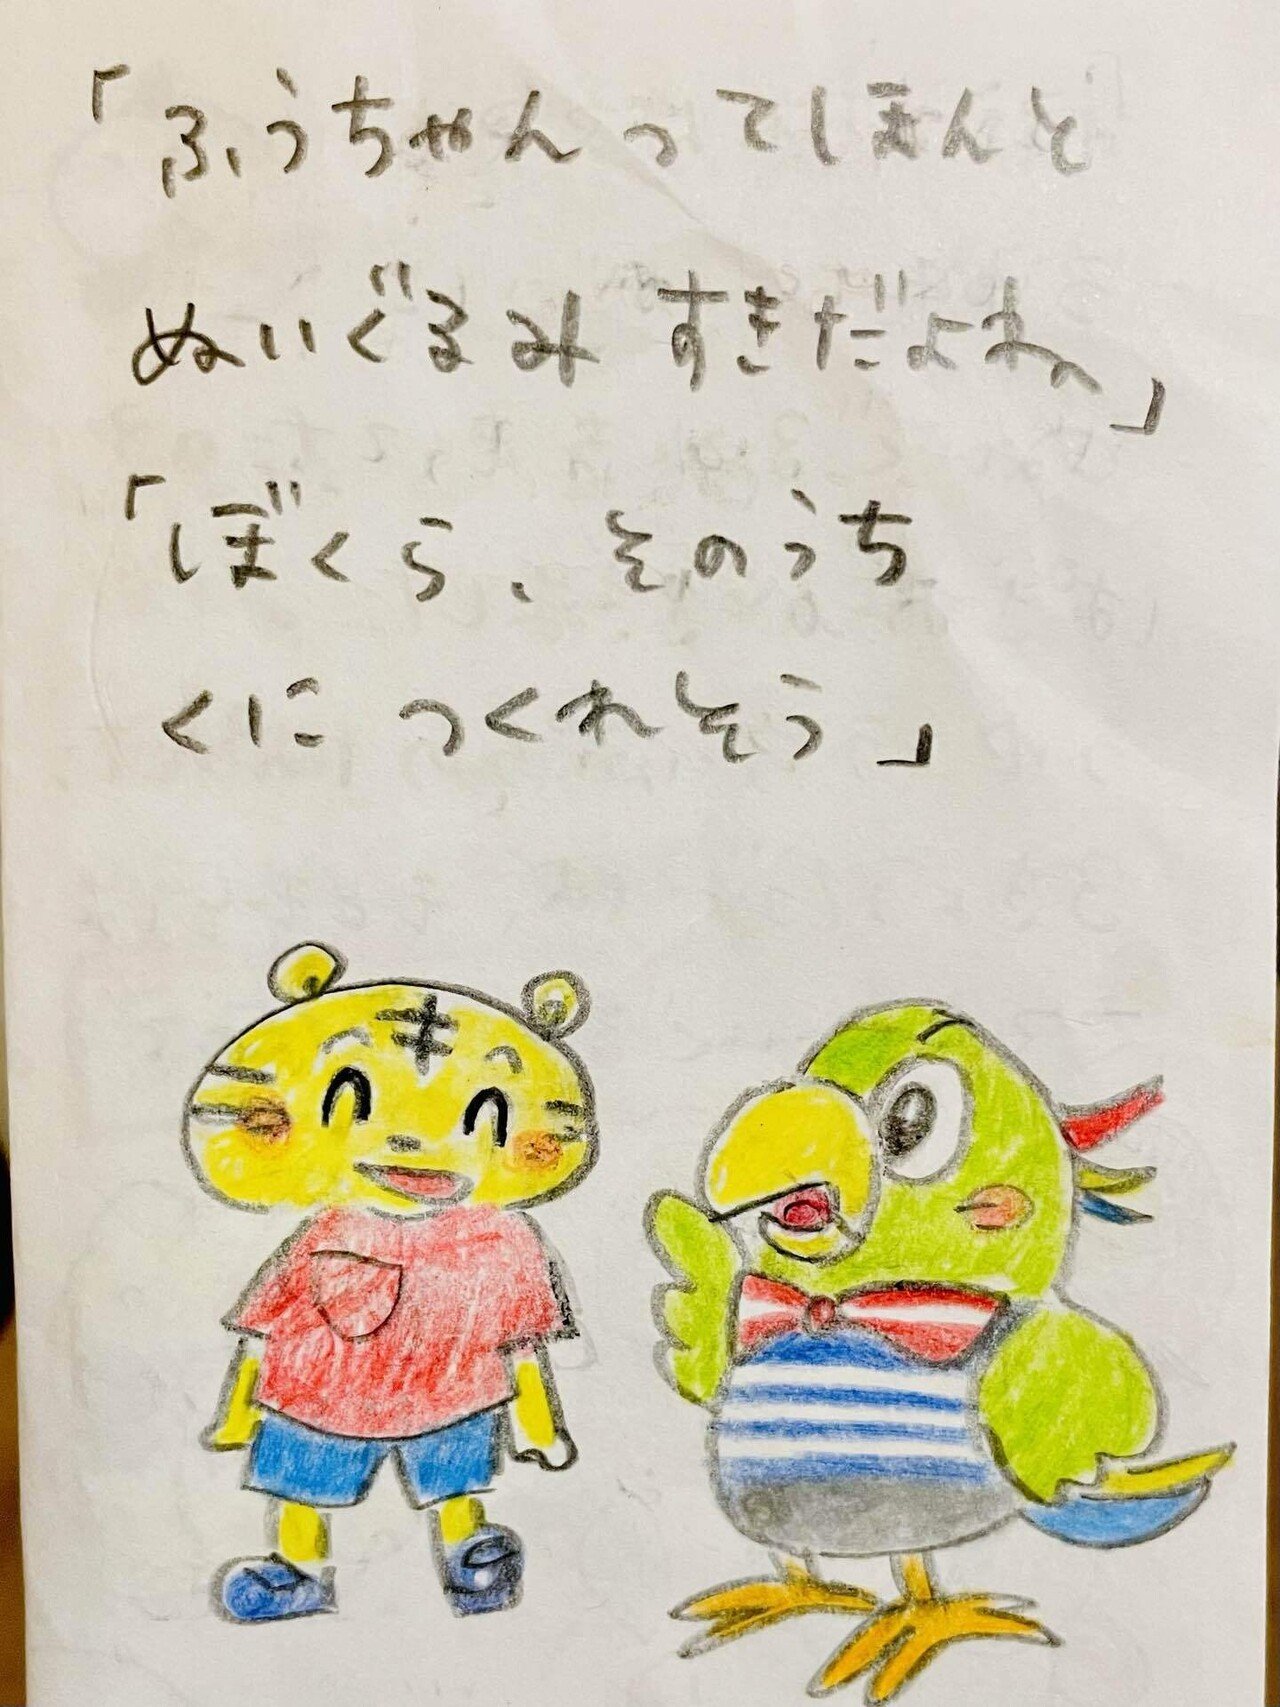 「ふうちゃんってほんと
ぬいぐるみ すきだよね」
「ぼくら、そのうち
くに つくれそう」